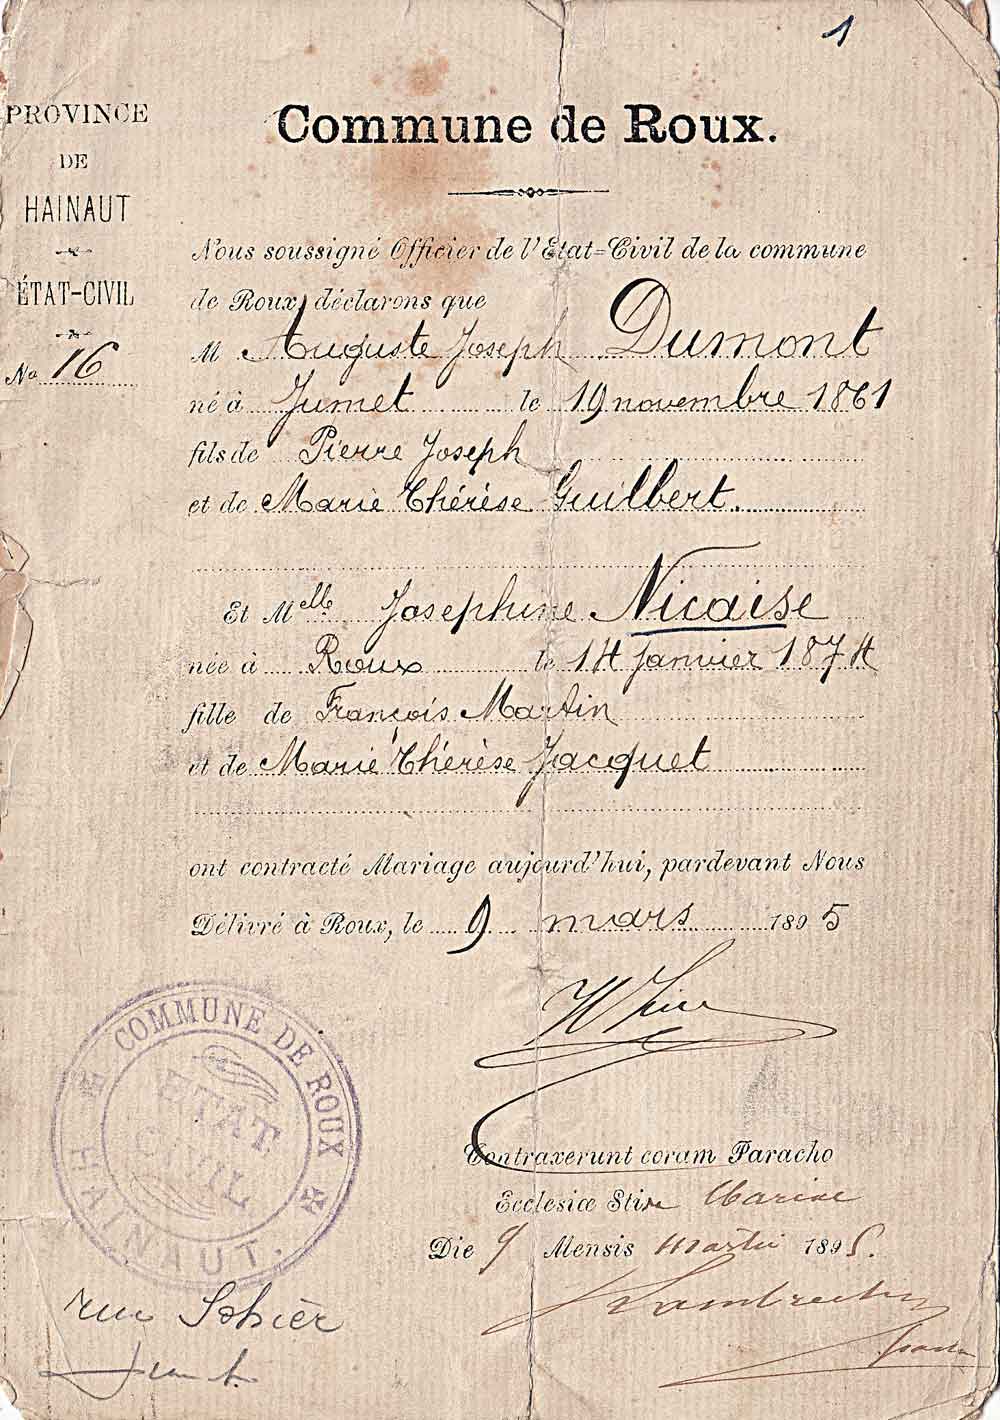 1
PROVINCE
DE
HAINAUT
ÉTAT-CIVIL
No 16
Commune de Roux.
Nous soussigné Officier de l'Etat=Civil de la commune
de Roux, déclarons que
M Auguste Joseph Dumont
né à Jumet le 19 novembre 1861
fils de Pierre Joseph
et de Marie Thérèse Guilbert.
Et Melle Josephine Nicaise
née à Roux le 14 janvier 1874
fille de François Martin
et de Marie Thérèse Jacquet
ont contracté Mariage aujourd'hui, pardevant Nous
Délivré à Roux, le 9 mars 1895
COMMUNE DE ROUX
ETAT
CIVIL
HAINAUT.
Contraxerunt coram Paracho
Ecclesiæ Stæ Mariæ
Die 9 Mensis martii 1895.
rue Sohier